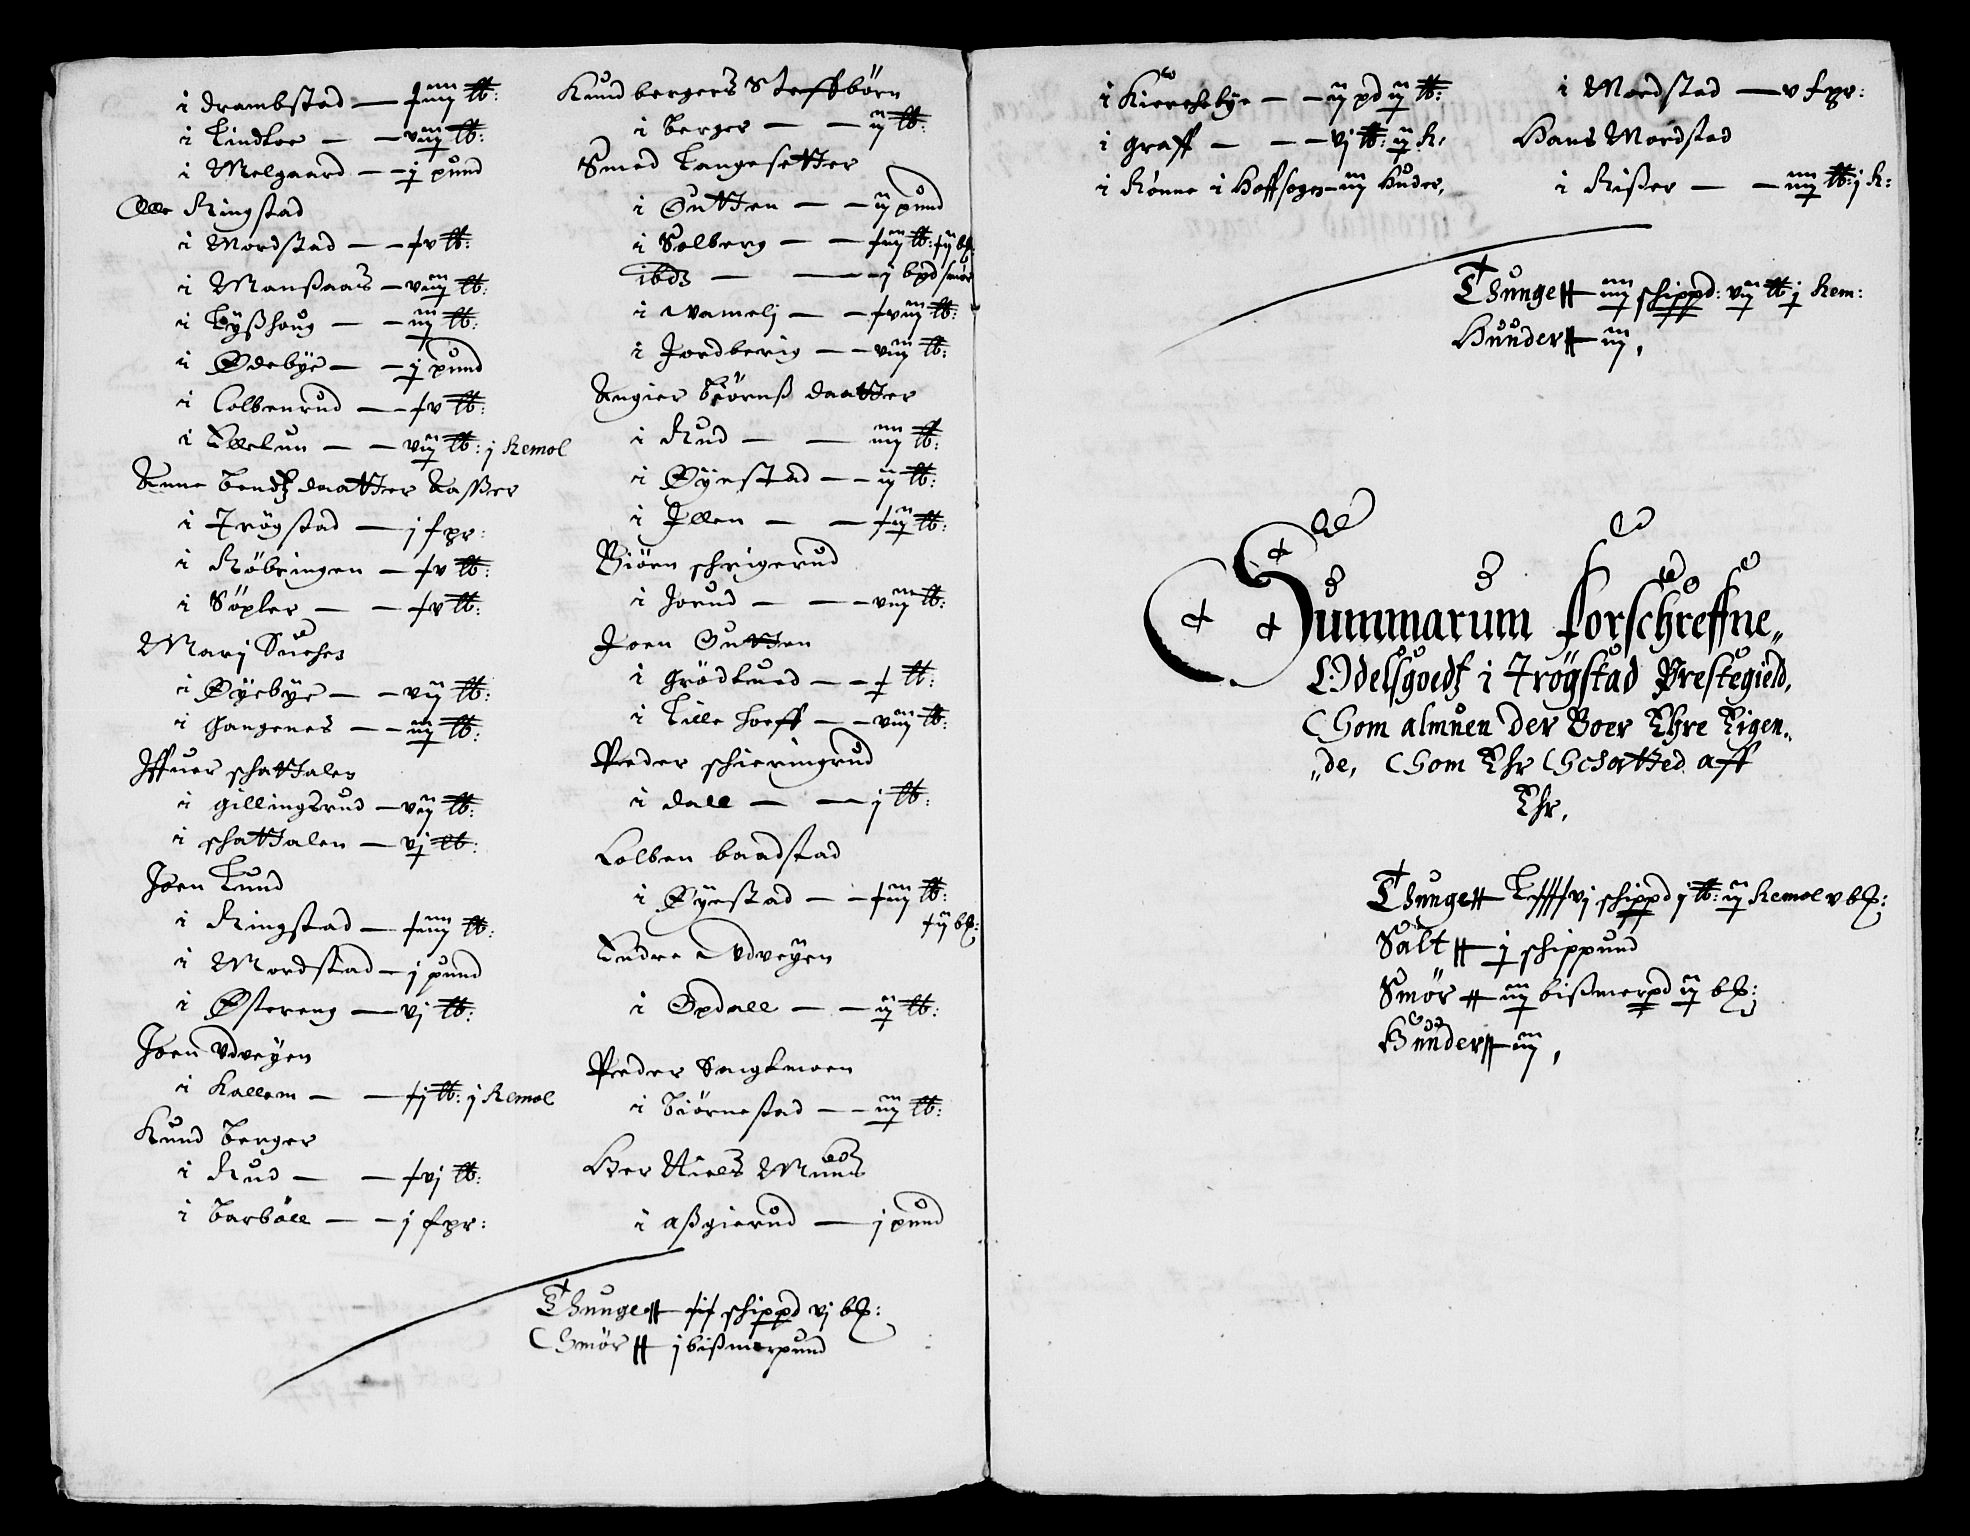 i Drambstad — x iiij lb:
i Lindloe — — viiij lb:
i Melgaard — — j pund
Olle Ringstad
i Mordstad — — x v lb:
i Monßaas — viiij lb:
i Byßhoug — — iij lb:
i Ødebye — — j pund
i Colbenrud — — x v lb:
i Ellelun — — viij lb: j Remol
Anne bendtz daatter Kasser
i Trögstad — j fpr:
i Röbringen — x v lb:
i Söpler — — x v lb:
Marj Suches
i Øyebye — — vij lb:
i Gangenes — — iij lb:
Iffuer schattalen
i gillingsrud — vij lb:
i schattalen — vj lb:
Joen Lund
i Ringstad — x iiij lb:
i Mordstad — j pund
i Østereng — vj lb:
Joen Vdveyen
i Kallem — — x j lb: j Remol
Knud berger
i Rud — — x vj lb:
i barböll — — j fpr:
Knud bergers Steffbörn
i berger — — ij lb:
Smed Langesetter
i Gutten — — ij pund
i Solberg — — x iij lb: x ij bl:
ibds — — j bpd smör
i Vamelj — — x viij lb:
i Jordberig — — viij lb:
Angier Biörnß daatter
i Rud — — iiij lb:
i Øyestad — — ij lb:
i Jllen — — x ij lb:
Biörn schrigerud
i Jorud — — viij lb:
Joen Gutten
i Grödlund — — x lb:
i Lille hoeff — — viij lb:
Peder schieringrud
i dall — — j lb:
Colben baadstad
i Øyestad — — x iij lb:
x ij bl:
Endre Vdveyen
i Opdall — — ij lb:
Peder Langlmoen
i biörnestad — — iij lb:
Her Niels Munds
i aßgierud — j pund
Thunge — xix schippd vj bl:
Smör — j bißmerpund
i Kierchebye — — ij pd ij lb:
i Graff — — — vj lb: ij R:
i Rönne i Hoffsogn — iij Huder,
i Mordstad — v fpr:
Hans Mordstad
i Rißer — — iiij lb: j R:
Thunge — iiij schippd: vij lb j Rem:
Huuder — iij,
Summarum forschreffne„
Odelsgoedtz i Trögstad Prestegield,
Som almuen der Boer Ehre Eigen„
„de, Som Ehr Schatted aff
Ehr,
Thunge — Lxxxvj schippd j lb: ij Remol v bl:
Salt — j schippund
Smör — iij bißmerpd ij bl:
Huuder — iij,